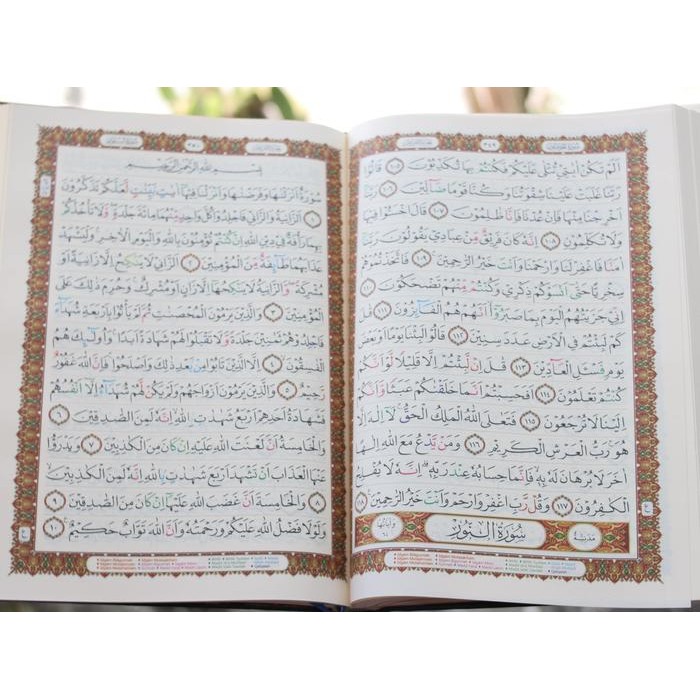 ٣٤٩
أَلَمْ تَكُنْ اٰيٰتِيْ تُتْلٰى عَلَيْكُمْ فَكُنْتُمْ بِهَا تُكَذِّبُوْنَ ١٠٥ قَالُوْا
رَبَّنَا غَلَبَتْ عَلَيْنَا شِقْوَتُنَا وَكُنَّا قَوْمًا ضَاۤلِّيْنَ ١٠٦ رَبَّنَآ
اَخْرِجْنَا مِنْهَا فَاِنْ عُدْنَا فَاِنَّا ظٰلِمُوْنَ ١٠٧ قَالَ اخْسَـُٔوْا فِيْهَا
وَلَا تُكَلِّمُوْنِ ١٠٨ اِنَّهٗ كَانَ فَرِيْقٌ مِّنْ عِبَادِيْ يَقُوْلُوْنَ رَبَّنَآ
اٰمَنَّا فَاغْفِرْ لَنَا وَارْحَمْنَا وَاَنْتَ خَيْرُ الرّٰحِمِيْنَ ١٠٩ فَاتَّخَذْتُمُوْهُمْ
سِخْرِيًّا حَتّٰىٓ اَنْسَوْكُمْ ذِكْرِيْ وَكُنْتُمْ مِّنْهُمْ تَضْحَكُوْنَ ١١٠
اِنِّيْ جَزَيْتُهُمُ الْيَوْمَ بِمَا صَبَرُوْٓا اَنَّهُمْ هُمُ الْفَاۤىِٕزُوْنَ ١١١ قٰلَ
كَمْ لَبِثْتُمْ فِى الْاَرْضِ عَدَدَ سِنِيْنَ ١١٢ قَالُوْا لَبِثْنَا يَوْمًا اَوْ بَعْضَ
يَوْمٍ فَسْـَٔلِ الْعَاۤدِّيْنَ ١١٣ قٰلَ اِنْ لَّبِثْتُمْ اِلَّا قَلِيْلًا لَّوْ اَنَّكُمْ
كُنْتُمْ تَعْلَمُوْنَ ١١٤ اَفَحَسِبْتُمْ اَنَّمَا خَلَقْنٰكُمْ عَبَثًا وَّاَنَّكُمْ
اِلَيْنَا لَا تُرْجَعُوْنَ ١١٥ فَتَعٰلَى اللّٰهُ الْمَلِكُ الْحَقُّۚ لَآ اِلٰهَ اِلَّا
هُوَۚ رَبُّ الْعَرْشِ الْكَرِيْمِ ١١٦ وَمَنْ يَّدْعُ مَعَ اللّٰهِ اِلٰهًا
اٰخَرَ لَا بُرْهَانَ لَهٗ بِهٖۙ فَاِنَّمَا حِسَابُهٗ عِنْدَ رَبِّهٖۗ اِنَّهٗ لَا يُفْلِحُ
الْكٰفِرُوْنَ ١١٧ وَقُلْ رَّبِّ اغْفِرْ وَارْحَمْ وَاَنْتَ خَيْرُ الرّٰحِمِيْنَ ١١٨
مدنية سُوْرَةُ النُّوْرِ
٣٥٠
بِسْمِ اللّٰهِ الرَّحْمٰنِ الرَّحِيْمِ
سُوْرَةٌ اَنْزَلْنٰهَا وَفَرَضْنٰهَا وَاَنْزَلْنَا فِيْهَآ اٰيٰتٍۢ بَيِّنٰتٍ لَّعَلَّكُمْ تَذَكَّرُوْنَ
١ اَلزَّانِيَةُ وَالزَّانِيْ فَاجْلِدُوْا كُلَّ وَاحِدٍ مِّنْهُمَا مِائَةَ جَلْدَةٍۖ وَّلَا تَأْخُذْكُمْ
بِهِمَا رَأْفَةٌ فِيْ دِيْنِ اللّٰهِ اِنْ كُنْتُمْ تُؤْمِنُوْنَ بِاللّٰهِ وَالْيَوْمِ الْاٰخِرِۚ وَلْيَشْهَدْ
عَذَابَهُمَا طَاۤىِٕفَةٌ مِّنَ الْمُؤْمِنِيْنَ ٢ اَلزَّانِيْ لَا يَنْكِحُ اِلَّا زَانِيَةً اَوْ
مُشْرِكَةًۖ وَّالزَّانِيَةُ لَا يَنْكِحُهَآ اِلَّا زَانٍ اَوْ مُشْرِكٌۚ وَحُرِّمَ ذٰلِكَ عَلَى
الْمُؤْمِنِيْنَ ٣ وَالَّذِيْنَ يَرْمُوْنَ الْمُحْصَنٰتِ ثُمَّ لَمْ يَأْتُوْا بِاَرْبَعَةِ شُهَدَاۤءَ
فَاجْلِدُوْهُمْ ثَمٰنِيْنَ جَلْدَةً وَّلَا تَقْبَلُوْا لَهُمْ شَهَادَةً اَبَدًاۚ وَاُولٰۤىِٕكَ هُمُ
الْفٰسِقُوْنَ ٤ اِلَّا الَّذِيْنَ تَابُوْا مِنْۢ بَعْدِ ذٰلِكَ وَاَصْلَحُوْاۚ فَاِنَّ اللّٰهَ غَفُوْرٌ
رَّحِيْمٌ ٥ وَالَّذِيْنَ يَرْمُوْنَ اَزْوَاجَهُمْ وَلَمْ يَكُنْ لَّهُمْ شُهَدَاۤءُ اِلَّآ اَنْفُسُهُمْ
فَشَهَادَةُ اَحَدِهِمْ اَرْبَعُ شَهٰدٰتٍۢ بِاللّٰهِۙ اِنَّهٗ لَمِنَ الصّٰدِقِيْنَ ٦
وَالْخَامِسَةُ اَنَّ لَعْنَتَ اللّٰهِ عَلَيْهِ اِنْ كَانَ مِنَ الْكٰذِبِيْنَ ٧ وَيَدْرَؤُا
عَنْهَا الْعَذَابَ اَنْ تَشْهَدَ اَرْبَعَ شَهٰدٰتٍۢ بِاللّٰهِ اِنَّهٗ لَمِنَ الْكٰذِبِيْنَ
٨ وَالْخَامِسَةَ اَنَّ غَضَبَ اللّٰهِ عَلَيْهَآ اِنْ كَانَ مِنَ الصّٰدِقِيْنَ ٩
وَلَوْلَا فَضْلُ اللّٰهِ عَلَيْكُمْ وَرَحْمَتُهٗ وَاَنَّ اللّٰهَ تَوَّابٌ حَكِيْمٌ ١٠